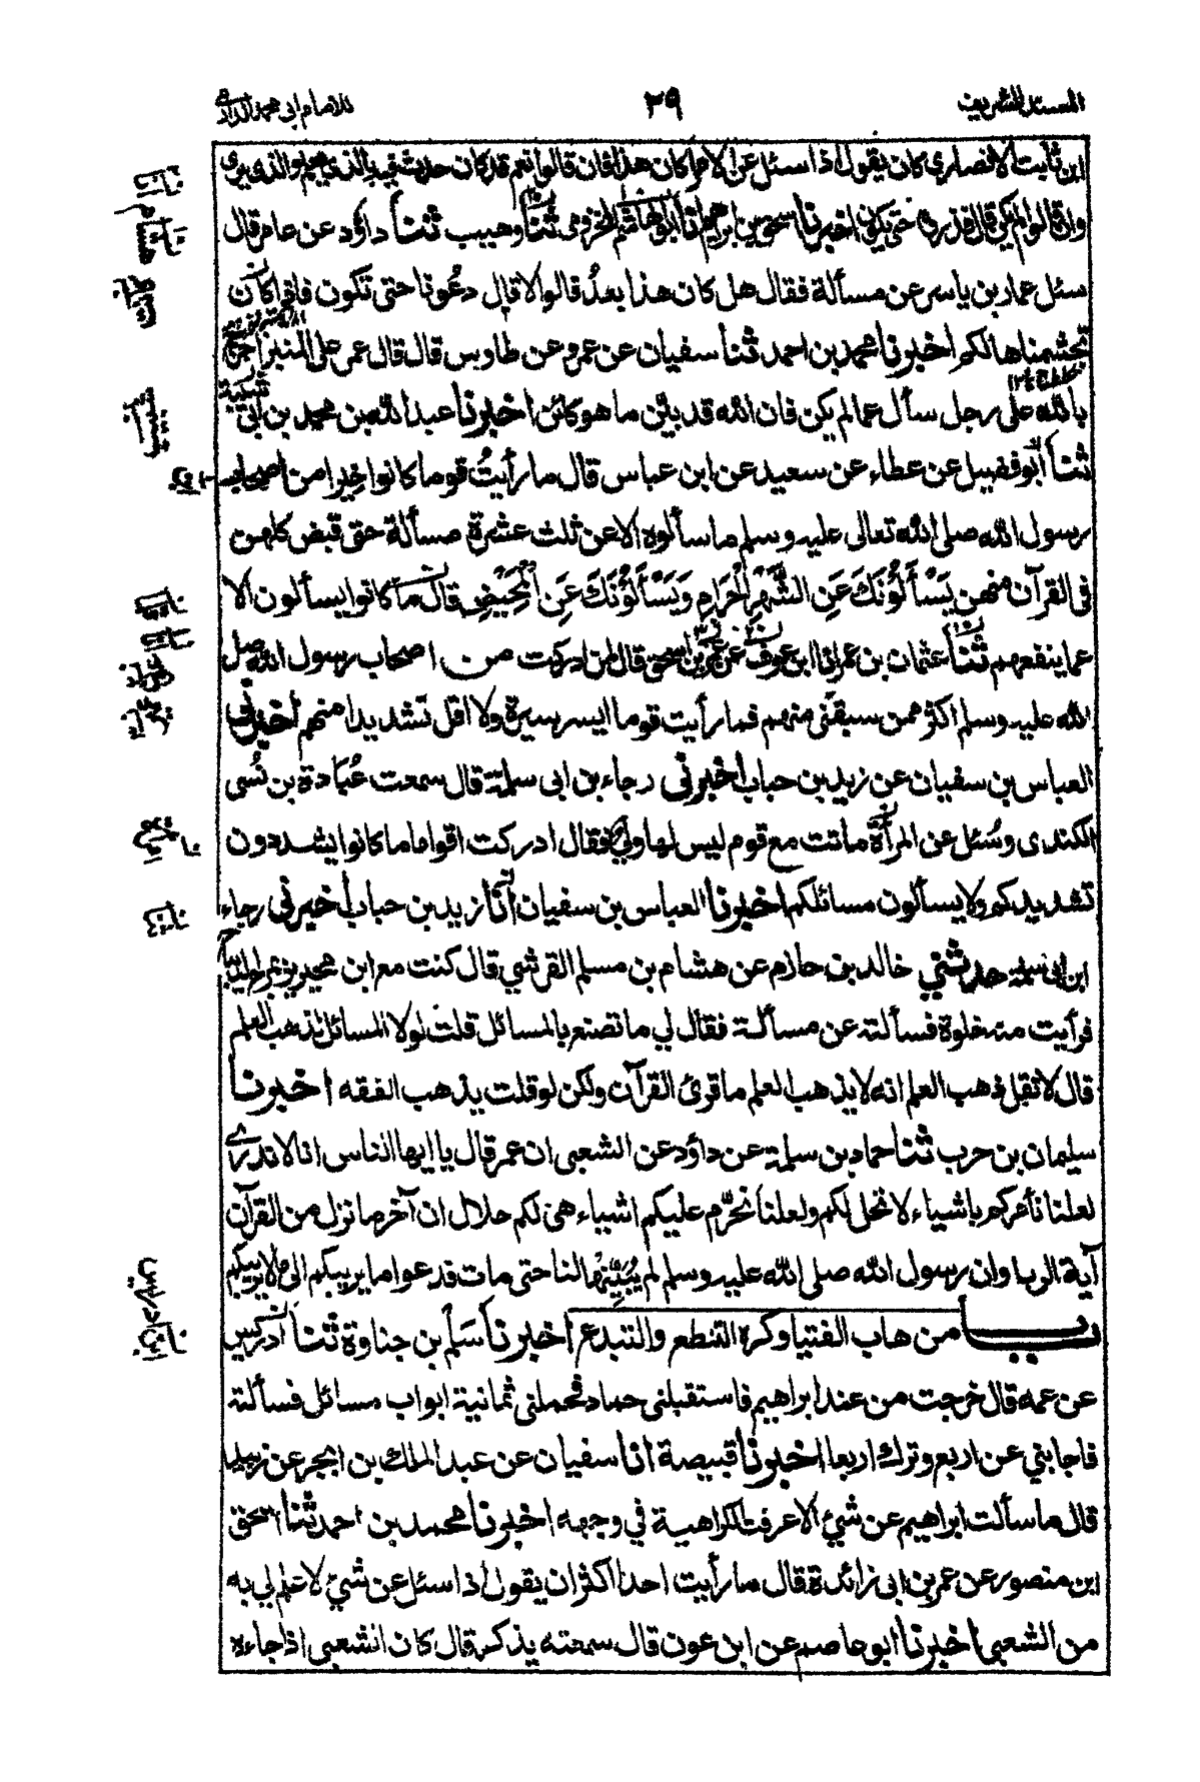 المسند الشريف
٢٩
للامام ابي محمد الدارمي
ابن ثابت الانصاري كان يقول اذا سئل عن الامر اكان هذا فان قالوا نعم قد كان حدث فيه بالذي يعلم والذي يرى
وان قالوا لم يكن قال فذروه حتى يكون اخبرنا اسحق بن ابراهيم انا ابو هاشم المخزومى ثنا وهيب ثنا داؤد عن عامر قال
سئل عمار بن ياسر عن مسألة فقال هل كان هذا بعدُ قالوا لا قال دعُونا حتى تكون فاذا كان
تجشمناها لكم اخبرنا محمد بن احمد ثنا سفيان عن عمرو عن طاوس قال قال عمر على المنبر احرج
بالله على رجل سأل عما لم يكن فان الله قد بيّن ما هو كائن اخبرنا عبد الله بن محمد بن ابي شيبة
ثنا ابو فضيل عن عطاء عن سعيد عن ابن عباس قال ما رأيتُ قوما كانوا خيرا من اصحاب
رسول الله صلى الله تعالى عليه وسلم ما سألوه الا عن ثلث عشرة مسألة حتى قبض كلهن
فى القرآن منهن يَسْأَلُوْنَكَ عَنِ الشَّهْرِ الْحَرَامِ وَيَسْأَلُوْنَكَ عَنِ الْمَحِيْضِ قال ما كانوا يسألون الا
عما ينفعهم ثنا عثمان بن عمر انا ابن عون عن عمير بن اسحق قال لمن ادركت من اصحاب رسول الله صلى
الله عليه وسلم اكثر ممن سبقنى منهم فما رأيت قوما ايسر سيرة ولا اقل تشديدا منهم اخبرنى
العباس بن سفيان عن زيد بن حباب اخبرنى رجاء بن ابى سلمة قال سمعت عُبَادة بن نُسى
الكندى وسُئل عن المرأة ماتت مع قوم ليس لها ولي فقال ادركت اقواما ما كانوا يشددون
تشديدكم ولا يسألون مسائلكم اخبرنا العباس بن سفيان انا زيد بن حباب اخبرنى رجاء
ابن ابى سلمة حدثني خالد بن حازم عن هشام بن مسلم القرشي قال كنت مع ابن محيريز
فرأيت منه خلوة فسألته عن مسألة فقال لي ما تصنع بالمسائل قلت لولا المسائل لذهب العلم
قال لا تقل ذهب العلم انه لا يذهب العلم ما قرئ القرآن ولكن لو قلت يذهب الفقه اخبرنا
سليمان بن حرب ثنا حماد بن سلمة عن داؤد عن الشعبى ان عمر قال يا ايها الناس انا لا ندري
لعلنا نأمركم باشياء لا تحل لكم ولعلنا نحرّم عليكم اشياء هى لكم حلال ان آخر ما نزل من القرآن
آية الربا وان رسول الله صلى الله عليه وسلم لم يُبَيِّنْها لنا حتى مات فدعوا ما يريبكم الى ما لا يريبكم
باب من هاب الفتيا وكره التنطع والتبدع اخبرنا سَلْم بن جنادة ثنا ابن ادريس
عن عمه قال خرجت من عند ابراهيم فاستقبلنى حماد فحملنى ثمانية ابواب مسائل فسألته
فاجابني عن اربع وترك اربعا اخبرنا قبيصة انا سفيان عن عبد الملك بن ابجر عن زبيد
قال ما سألت ابراهيم عن شيئ الا عرفت الكراهية في وجهه اخبرنا محمد بن احمد ثنا اسحق
ابن منصور عن عمر بن ابى زائدة قال ما رأيت احدا اكثر ان يقول اذا سئل عن شيئ لا علم لي به
من الشعبى اخبرنا ابو عاصم عن ابن عون قال سمعته يذكر قال كان الشعبى اذا جاءه